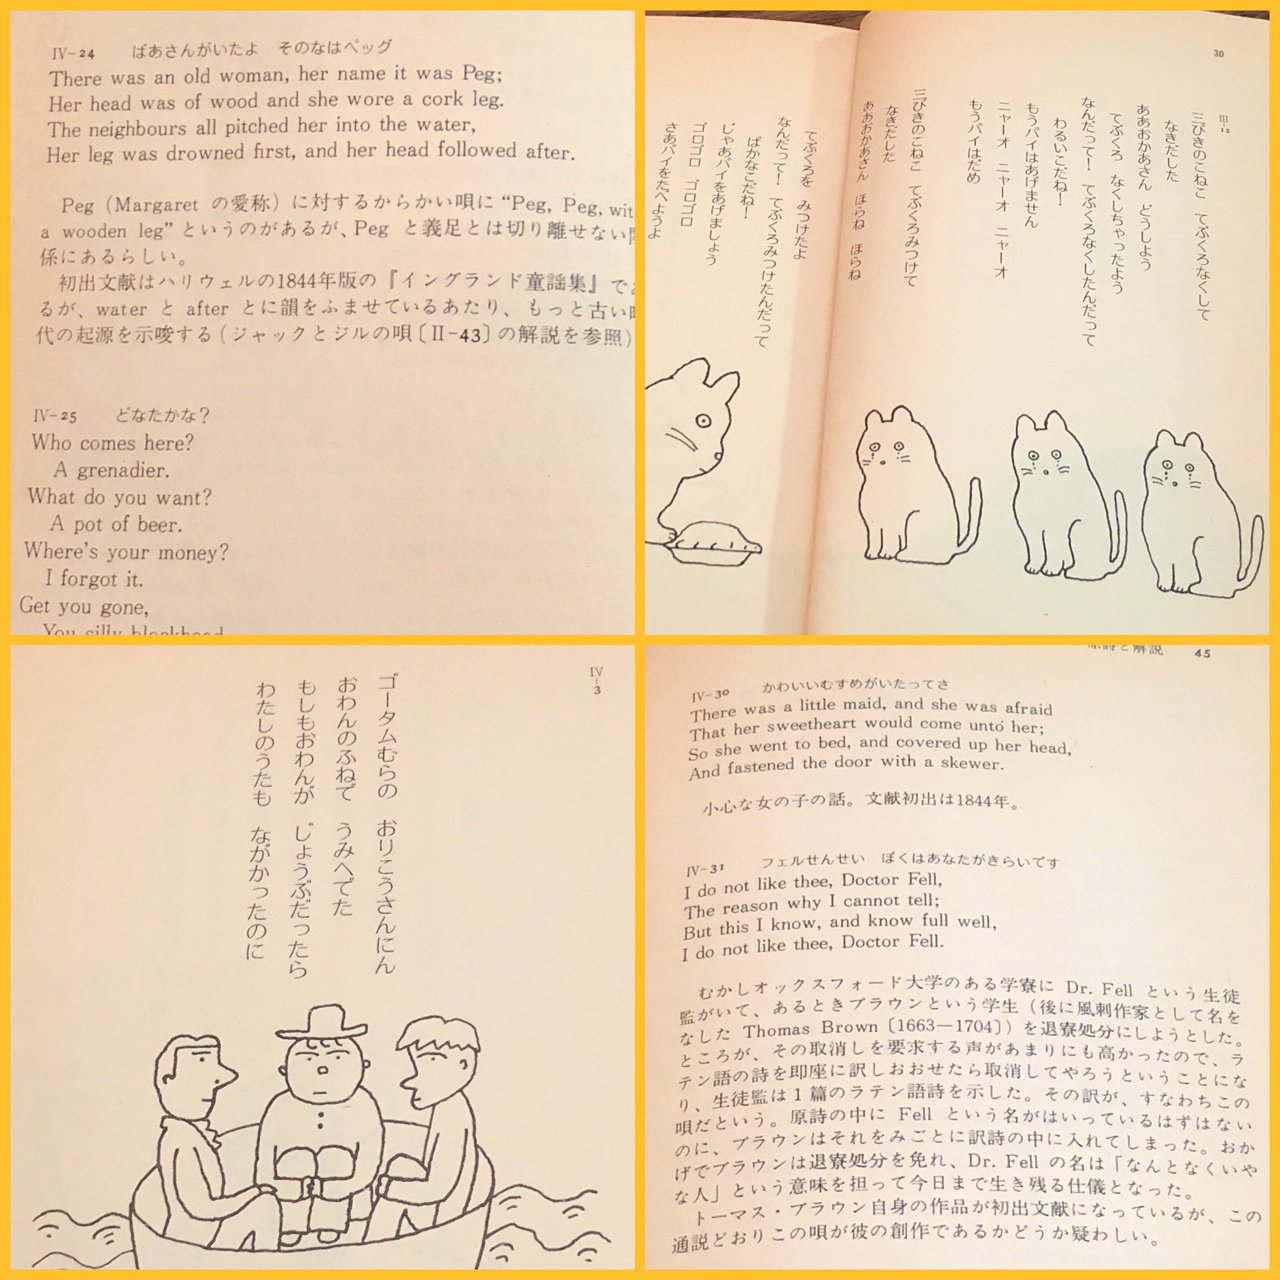 IV-24 ばあさんがいたよ そのなはペッグ
There was an old woman, her name it was Peg;
Her head was of wood and she wore a cork leg.
The neighbours all pitched her into the water,
Her leg was drowned first, and her head followed after.
Peg (Margaret の愛称) に対するからかい唄に “Peg, Peg, wit
a wooden leg” というのがあるが、Peg と義足とは切り離せない
係にあるらしい。
初出文献はハリウェルの1844年版の『イングランド童謡集』で
るが、water と after とに韻をふませているあたり、もっと古い
代の起源を示唆する (ジャックとジルの唄〔II-43〕の解説を参照)
IV-25 どなたかな?
Who comes here?
A grenadier.
What do you want?
A pot of beer.
Where's your money?
I forgot it.
Get you gone,
You silly blockhead
30
III-12
三びきのこねこ てぶくろなくして
なきだした
ああおかあさん どうしよう
てぶくろ なくしちゃったよう
なんだって! てぶくろなくしたんだって
わるいこだね!
もうパイはあげません
ニャーオ ニャーオ ニャーオ
もうパイはだめ
三びきのこねこ てぶくろみつけて
なきだした
ああおかあさん ほらね ほらね
てぶくろを みつけたよ
なんだって! てぶくろみつけたんだって
ばかなこだね!
じゃあパイをあげましょう
ゴロゴロ ゴロゴロ
さあパイをたべようよ
IV-3
ゴータムむらの おりこうさんにん
おわんのふねで うみへでた
もしもおわんが じょうぶだったら
わたしのうたも ながかったのに
解説 45
IV-30 かわいいむすめがいたってさ
There was a little maid, and she was afraid
That her sweetheart would come unto her;
So she went to bed, and covered up her head,
And fastened the door with a skewer.
小心な女の子の話。文献初出は1844年。
IV-31 フェルせんせい ぼくはあなたがきらいです
I do not like thee, Doctor Fell,
The reason why I cannot tell;
But this I know, and know full well,
I do not like thee, Doctor Fell.
むかしオックスフォード大学のある学寮に Dr. Fell という生徒
監がいて、あるときブラウンという学生 (後に風刺作家として名を
なした Thomas Brown〔1663—1704〕) を退寮処分にしようとした。
ところが、その取消しを要求する声があまりにも高かったので、ラ
テン語の詩を即座に訳しおおせたら取消してやろうということにな
り、生徒監は1篇のラテン語詩を示した。その訳が、すなわちこの
唄だという。原詩の中に Fell という名がはいっているはずはない
のに、ブラウンはそれをみごとに訳詩の中に入れてしまった。おか
げでブラウンは退寮処分を免れ、Dr. Fell の名は「なんとなくいや
な人」という意味を担って今日まで生き残る仕儀となった。
トーマス・ブラウン自身の作品が初出文献になっているが、この
通説どおりこの唄が彼の創作であるかどうか疑わしい。